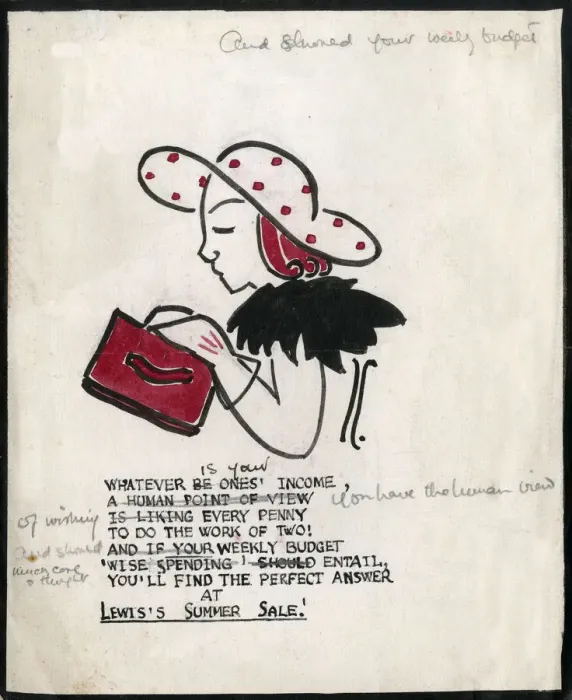 And should your weekly budget
is your
WHATEVER BE ONES' INCOME,
A HUMAN POINT OF VIEW you have the human view
of wishing IS LIKING EVERY PENNY
TO DO THE WORK OF TWO!
And should AND IF YOUR WEEKLY BUDGET
much care 'WISE SPENDING' SHOULD ENTAIL,
& thought YOU'LL FIND THE PERFECT ANSWER
AT
LEWIS'S SUMMER SALE!